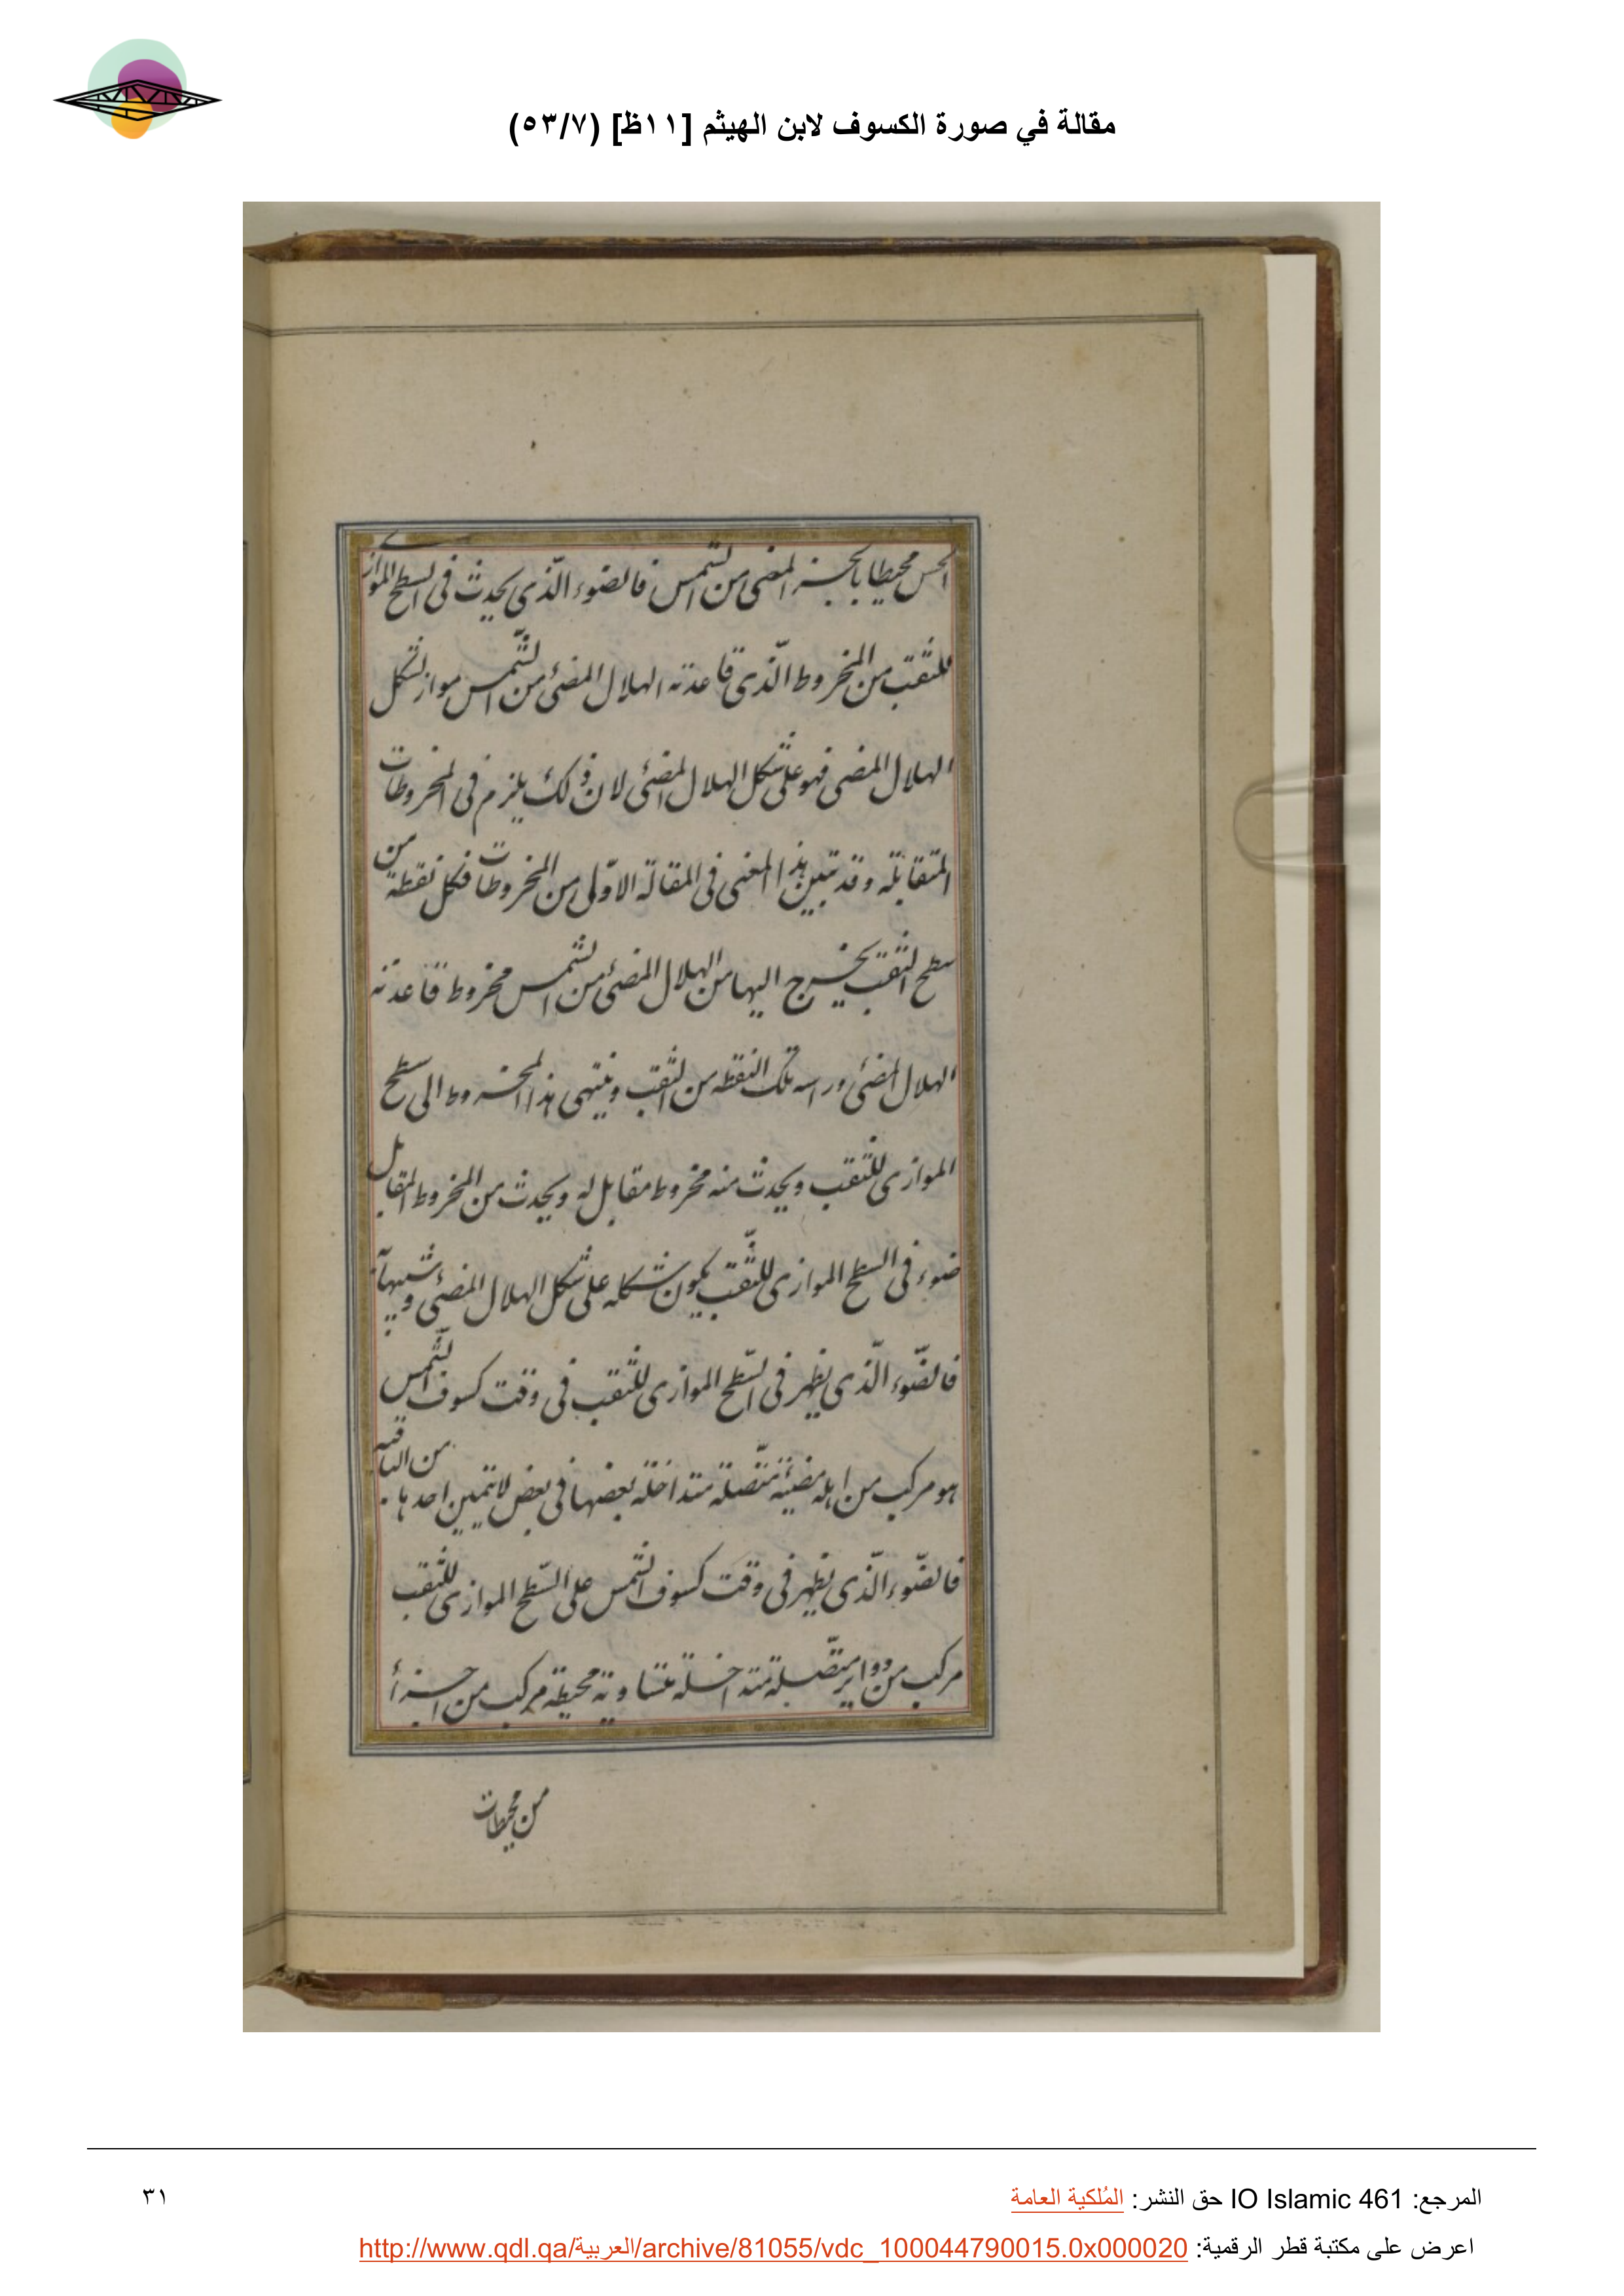 مقالة في صورة الكسوف لابن الهيثم [١١ظ] (٥٣/٧)
الحس محيطا بالجزء المضئ من الشمس فالضوء الّذى يحدث فى السطح الموازى
للثقب من المخروط الّذى قاعدته الهلال المضئ من الشّمس مواز لشكل
الهلال المضى فهو على شكل الهلال المضئى لان ذلك يلزم فى المخروطات
المتقابلة وقد تبين هذا المعنى فى المقالة الاوّلى من المخروطات فكل نقطة من
سطح الثقب يخرج اليها من الهلال المضئ من الشمس مخروط قاعدته
الهلال المضئى وراسه تلك النقطة من الثقب وينتهى هذا المخروط الى سطح
الموازى للثقب ويحدث منه مخروط مقابل له ويحدث من المخروط المقابل
ضوء فى السطح الموازى للثّقب يكون شكله على شكل الهلال المضئى وشبيها
فالضّوء الّذى يظهر فى السّطح الموازى للثقب فى وقت كسوف الشّمس
هو مركب من اهلة مضيئة متّصلة متداخلة بعضها فى بعض لا تتميز احدها من الباقية
فالضّوء الّذى يظهر فى وقت كسوف الشمس على السّطح الموازى للثقب
مركب من دواير متّصلة متداخلة متساوية محيطة مركب من اجزأ
من محيطات
المرجع: IO Islamic 461 حق النشر: المُلكية العامة
٣١
اعرض على مكتبة قطر الرقمية: http://www.qdl.qa/العربية/archive/81055/vdc_100044790015.0x000020